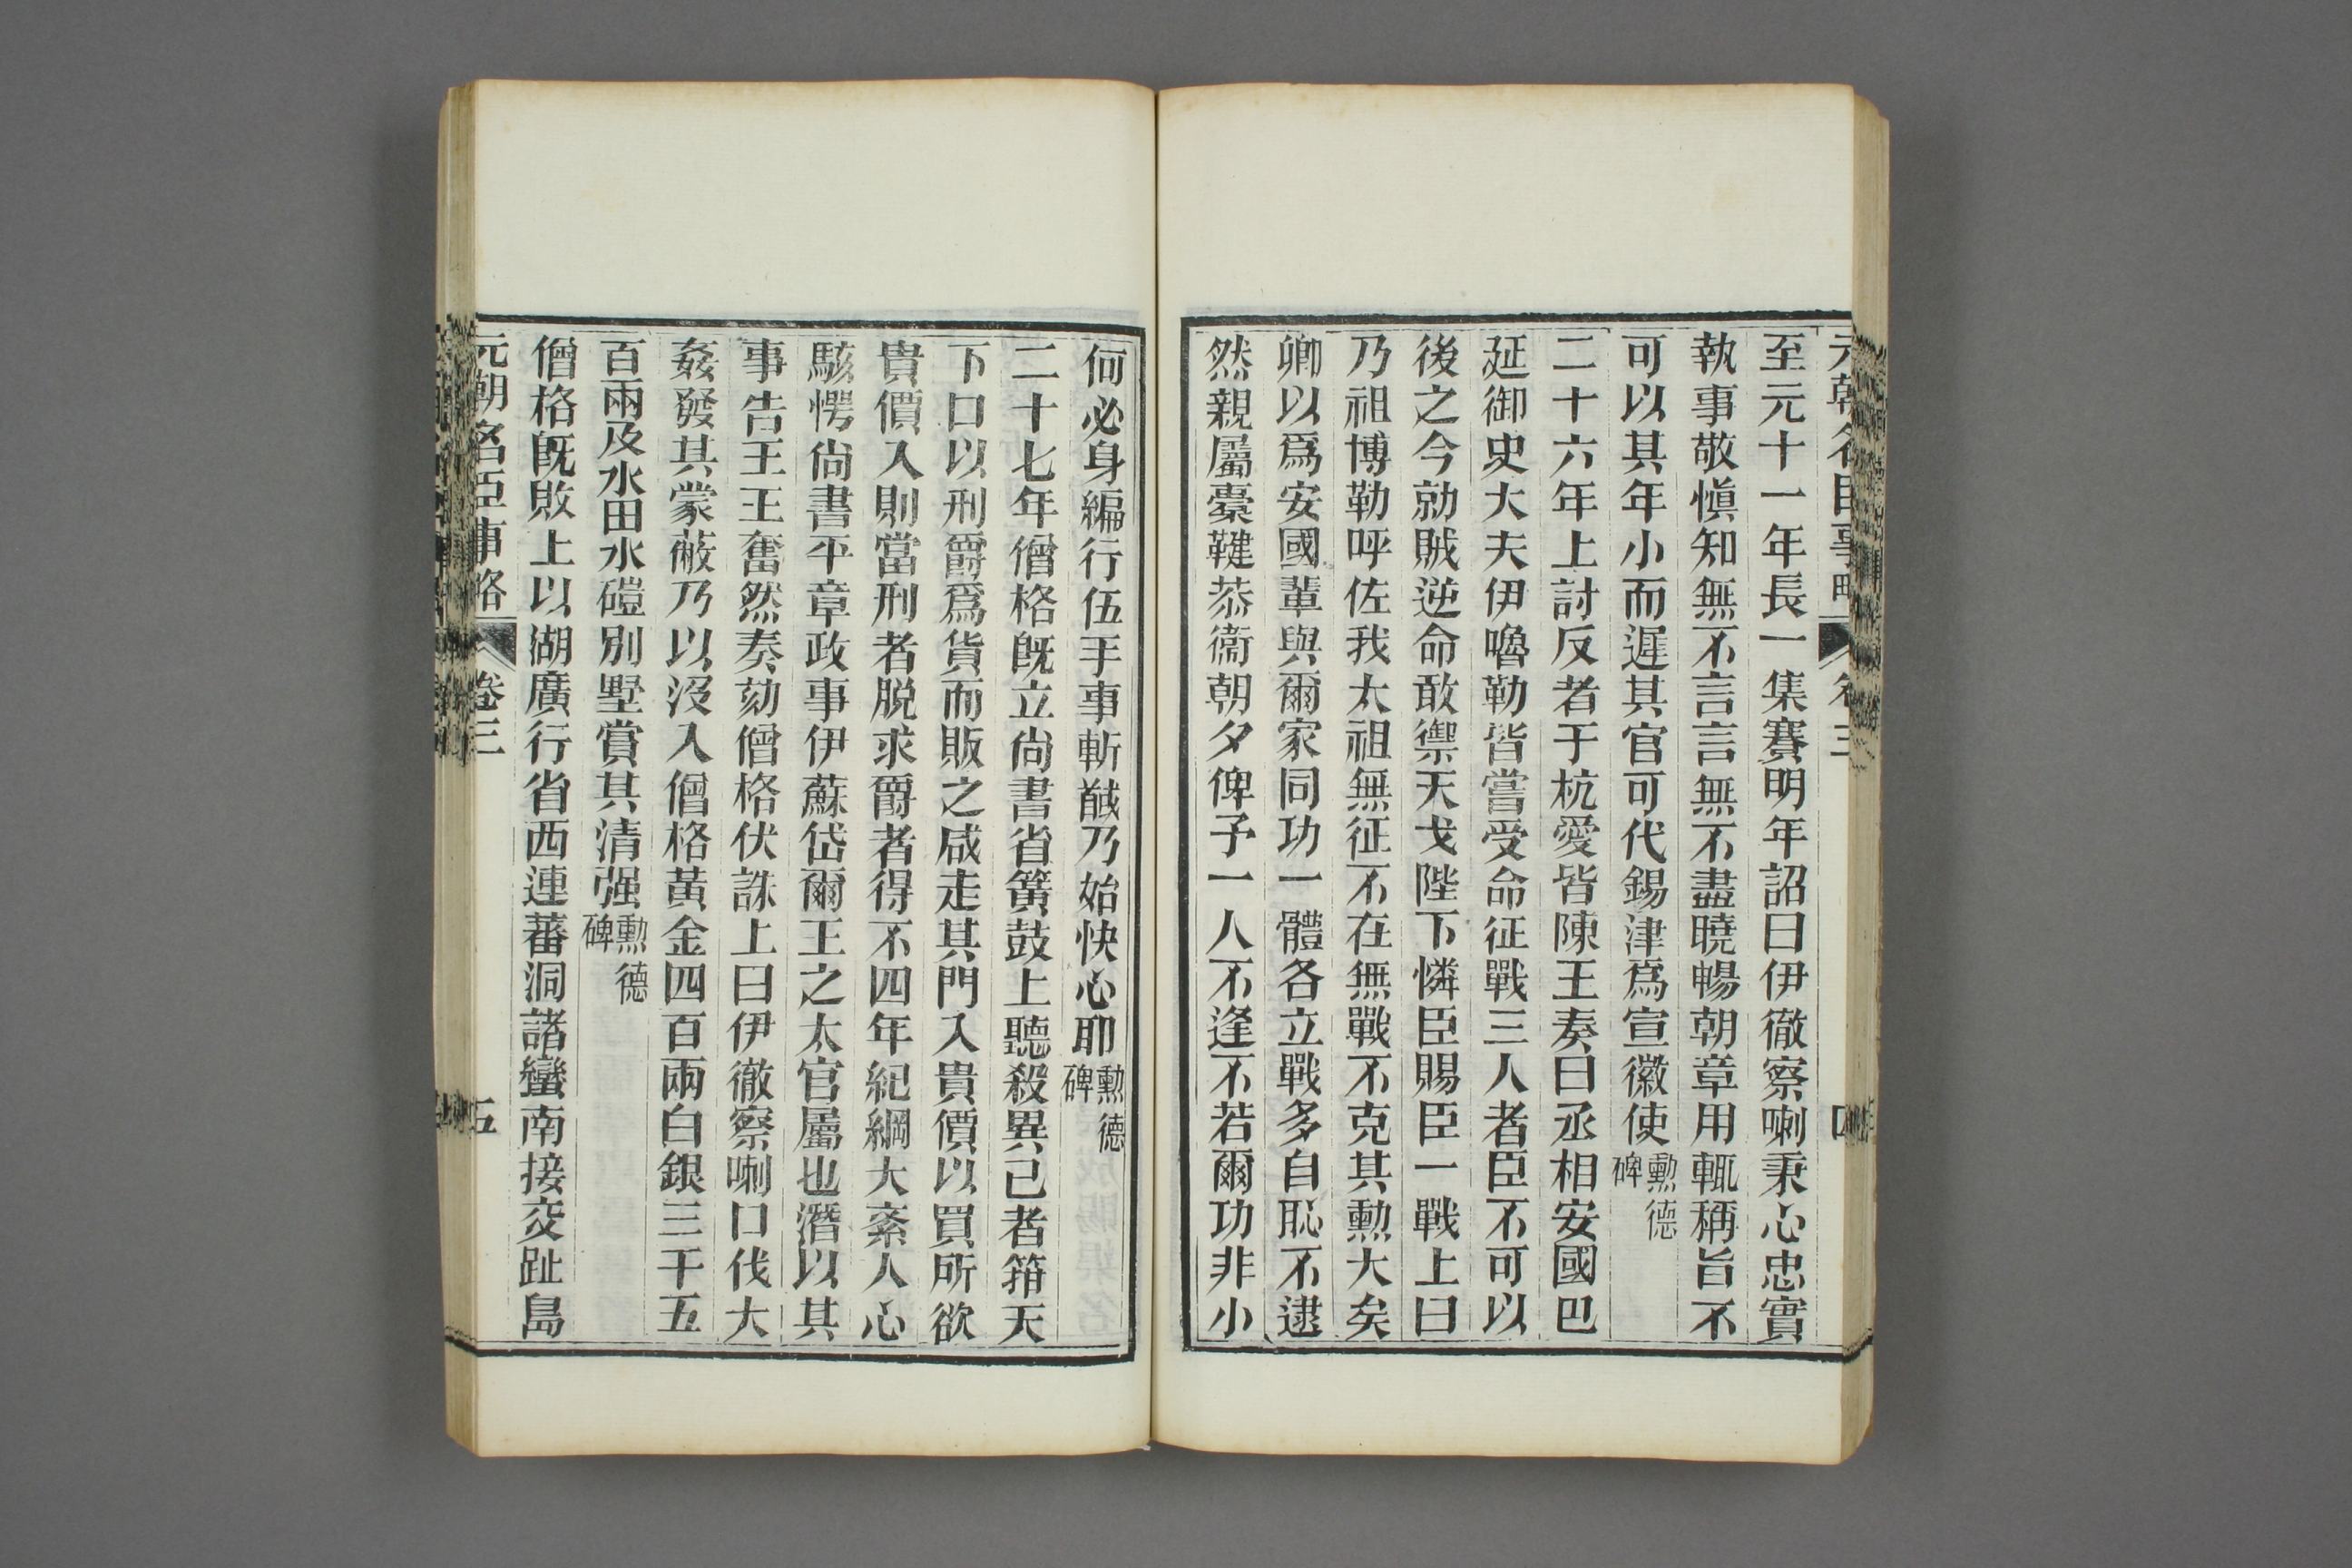 元朝名臣事略 卷三 四
至元十一年長一集賽明年詔曰伊徹察喇秉心忠實
執事敬愼知無不言言無不盡曉暢朝章用輒稱旨不
可以其年小而遲其官可代錫津爲宣徽使勳德碑
二十六年上討反者于杭愛皆陳王奏曰丞相安國巴
延御史大夫伊嚕勒皆嘗受命征戰三人者臣不可以
後之今勍賊逆命敢禦天戈陛下憐臣賜臣一戰上曰
乃祖博勒呼佐我太祖無征不在無戰不克其勳大矣
卿以爲安國輩與爾家同功一體各立戰多自恥不逮
然親屬櫜鞬恭衞朝夕俾予一人不逢不若爾功非小
何必身編行伍手事斬馘乃始快心耶勳德碑
二十七年僧格旣立尙書省簧鼓上聽殺異己者箝天
下口以刑爵爲貨而販之咸走其門入貴價以買所欲
貴價入則當刑者脫求爵者得不四年紀綱大紊人心
駭愕尙書平章政事伊蘇岱爾王之太官屬也潛以其
事告王王奮然奏劾僧格伏誅上曰伊徹察喇口伐大
姦發其蒙蔽乃以沒入僧格黃金四百兩白銀三千五
百兩及水田水磑別墅賞其淸强勳德碑
僧格旣敗上以湖廣行省西連蕃洞諸蠻南接交趾島
元朝名臣事略 卷三 五